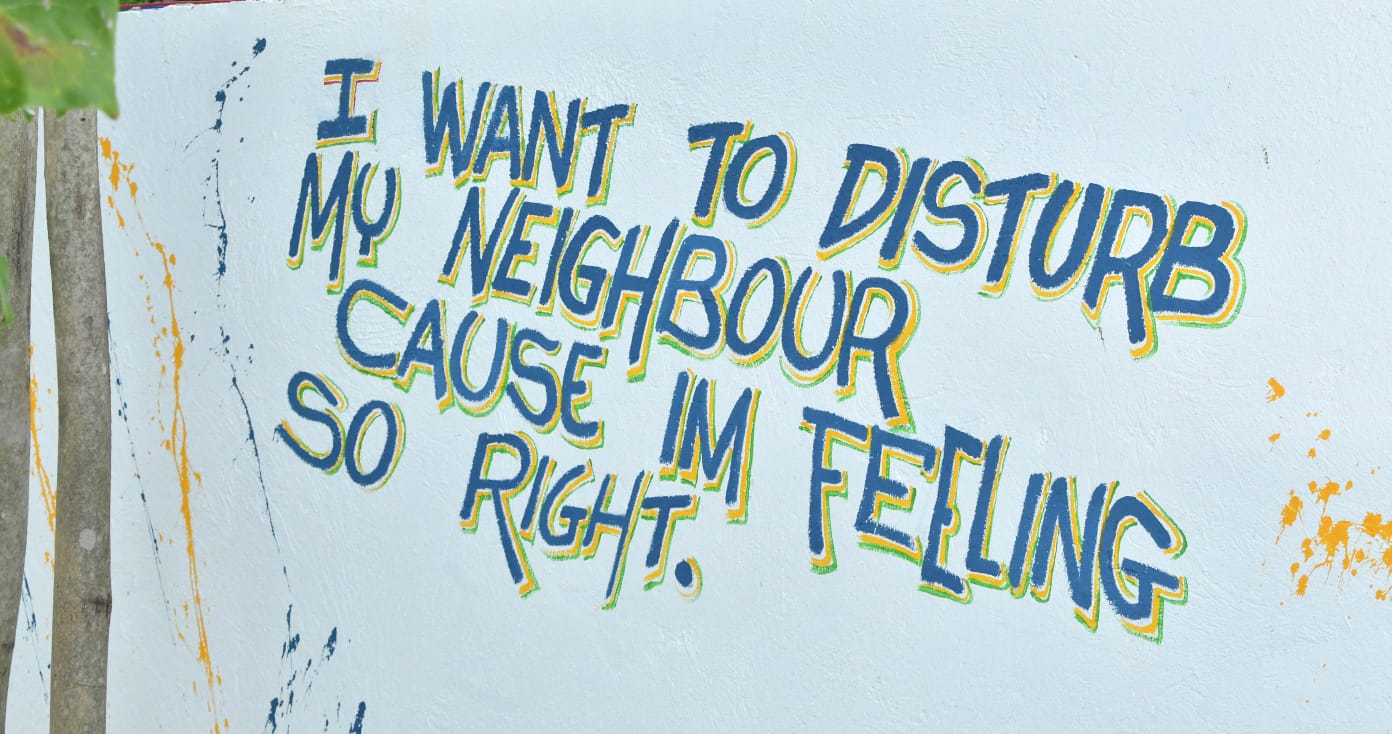 I WANT TO DISTURB
MY NEIGHBOUR
CAUSE IM FEELING
SO RIGHT.